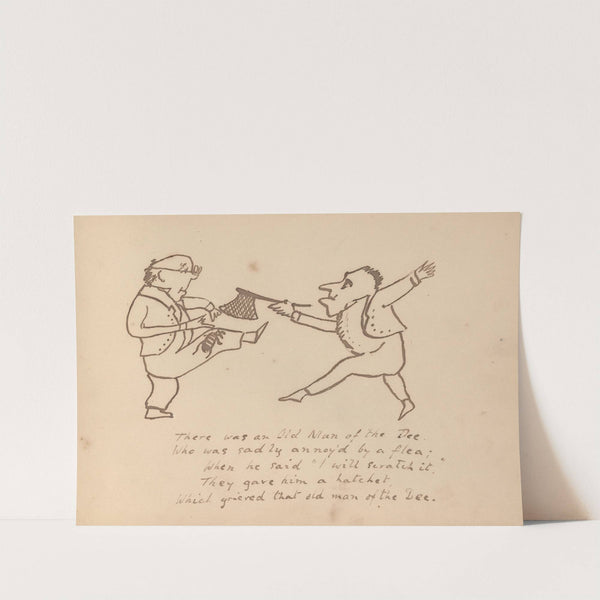 There was an Old Man of the Dee.
Who was sadly annoy'd by a flea;
When he said "I will scratch it,"
They gave him a hatchet,
Which grieved that old man of the Dee.